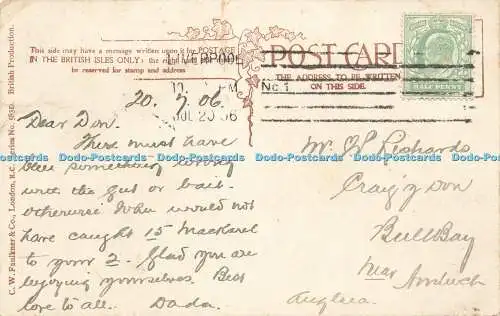 This side may have a message written upon it for POSTAGE
IN THE BRITISH ISLES ONLY; the right hand
be reserved for stamp and address
POST CARD
THE ADDRESS TO BE WRITTEN
ON THIS SIDE.
HALF PENNY
LIVERPOOL
No. 1
JUL 20 06
C. W. Faulkner & Co., London, E.C. Series No. British Production.
20. 7. 06.
Dear Don.
There must have
been something wrong
with the gut or bait.
otherwise John would not
have caught 15 Mackerel
to your 2. Glad you are
enjoying yourselves. Best
love to all. Dada.
Mr Richards
Craig y Don
Bull Bay
Near Amlwch
Anglesea
Dodo-Postcards Dodo-Postcards Dodo-Postcards Dodo-Postcards Dodo-Postcards Dodo-Postcards